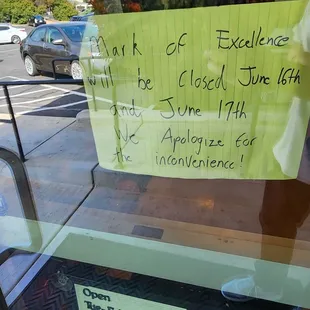 Mark of Excellence
Will be Closed June 16th
and June 17th
We Apologize for
the inconvenience!
Open